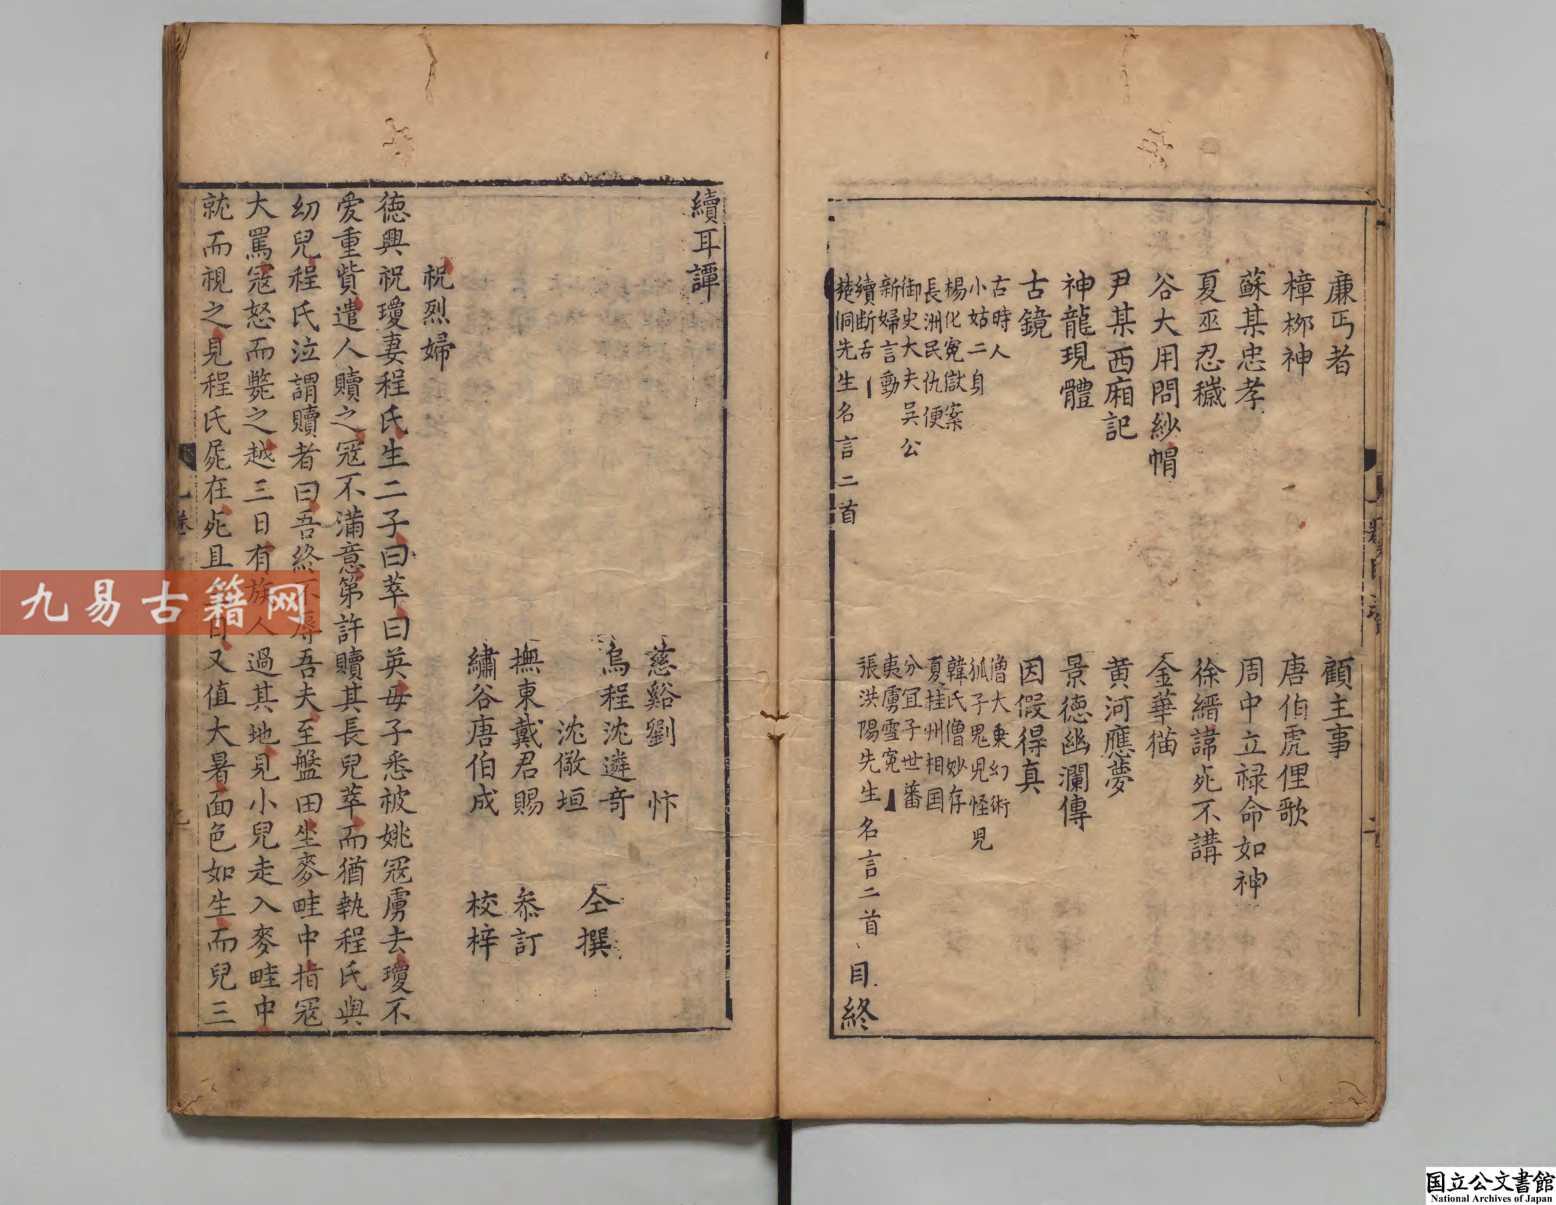 廉丐者
顧主事
樟柳神
唐伯虎俚歌
蘇某忠孝
周中立祿命如神
夏巫忍穢
徐縉諱死不講
谷大用問紗帽
金華猫
尹某西廂記
黄河應夢
神龍現體
景德幽瀾傳
古鏡
因假得真
古時人
僧大乗幻術
小姑二身
狐子鬼兒怪兒
楊化寃獄案
韓氏僧妙存
長洲民仇便
夏桂州相国
御史大夫吴公
分宜子世蕃
新婦言動
夷虜雪寃
續断舌
張洪陽先生名言二首
楚侗先生名言二首
目終
續耳譚
慈谿劉忭
烏程沈遴竒
沈儆垣
仝撰
撫東戴君賜
叅訂
繡谷唐伯成
校梓
祝烈婦
徳興祝瓊妻程氏生二子曰萃曰英母子悉被姚冦虜去瓊不
愛重貲遣人贖之冦不滿意第許贖其長兒萃而猶執程氏與
幼兒程氏泣謂贖者曰吾終不辱吾夫至盤田坐麥畦中指冦
大罵冦怒而斃之越三日有族人過其地見小兒走入麥畦中
就而視之見程氏屍在死且日又值大暑面色如生而兒三
九易古籍网
国立公文書館
National Archives of Japan